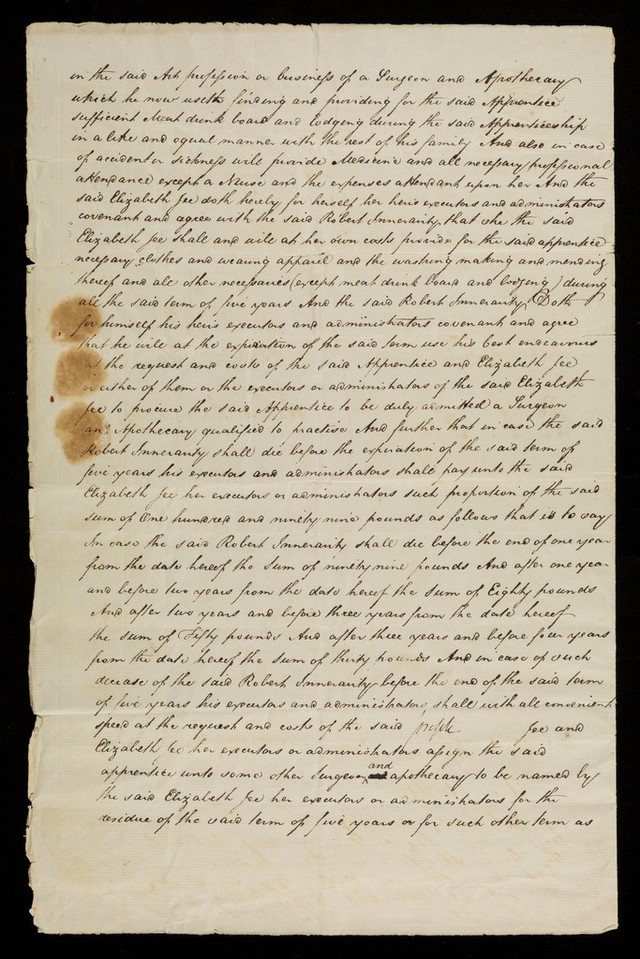 in the said Art profession or business of a Surgeon and Apothecary
which he now useth finding and providing for the said Apprentice
sufficient Meat drink board and lodging during the said Apprenticeship
in a like and equal manner with the rest of his family And also in case
of accident or sickness will provide Medicine and all necessary professional
attendance except a Nurse and the expenses attendant upon her And the
said Elizabeth Jee doth hereby for herself her heirs executors and administrators
covenant and agree with the said Robert Innerarity that she the said
Elizabeth Jee shall and will at her own costs provide for the said apprentice
necessary clothes and wearing apparel and the washing making and mending
thereof and all other necessaries (except meat drink board and lodging) during
all the said term of five years And the said Robert Innerarity Doth
for himself his heirs executors and administrators covenant and agree
that he will at the expiration of the said term use his best endeavours
at the request and costs of the said Apprentice and Elizabeth Jee
or either of them or the executors or administrators of the said Elizabeth
Jee to procure the said Apprentice to be duly admitted a Surgeon
and Apothecary qualified to practise And further that in case the said
Robert Innerarity shall die before the expiration of the said term of
five years his executors and administrators shall pay unto the said
Elizabeth Jee her executors or administrators such proportion of the said
sum of One hundred and ninety nine pounds as follows that is to say
In case the said Robert Innerarity shall die before the end of one year
from the date hereof the sum of ninety nine pounds And after one year
and before two years from the date hereof the sum of Eighty pounds
And after two years and before three years from the date hereof
the sum of Fifty pounds And after three years and before four years
from the date hereof the sum of thirty pounds And in case of such
decease of the said Robert Innerarity before the end of the said term
of five years his executors and administrators shall with all convenient
speed at the request and costs of the said Jee and
Elizabeth Jee her executors or administrators assign the said
apprentice unto some other Surgeon and apothecary to be named by
the said Elizabeth Jee her executors or administrators for the
residue of the said term of five years or for such other term as